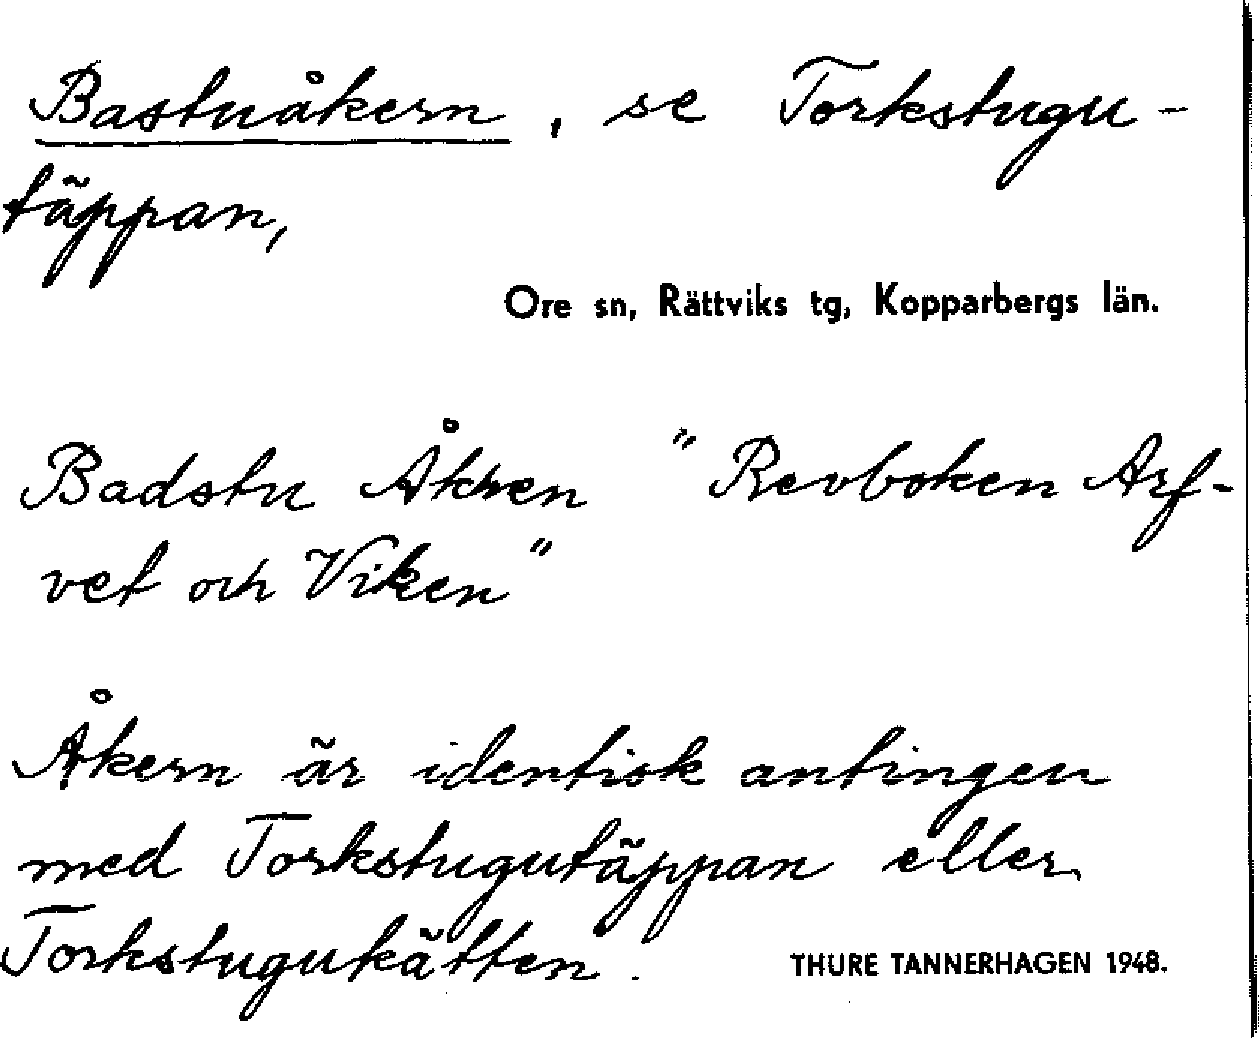 Bastuåkern, se Torkstugu-
täppan,
Ore sn, Rättviks tg, Kopparbergs län.
Badstu Åkren "Revboken Arf-
vet och Viken"
Åkern är identisk antingen
med Torkstugutäppan eller
Torkstugukätten.
THURE TANNERHAGEN 1948.